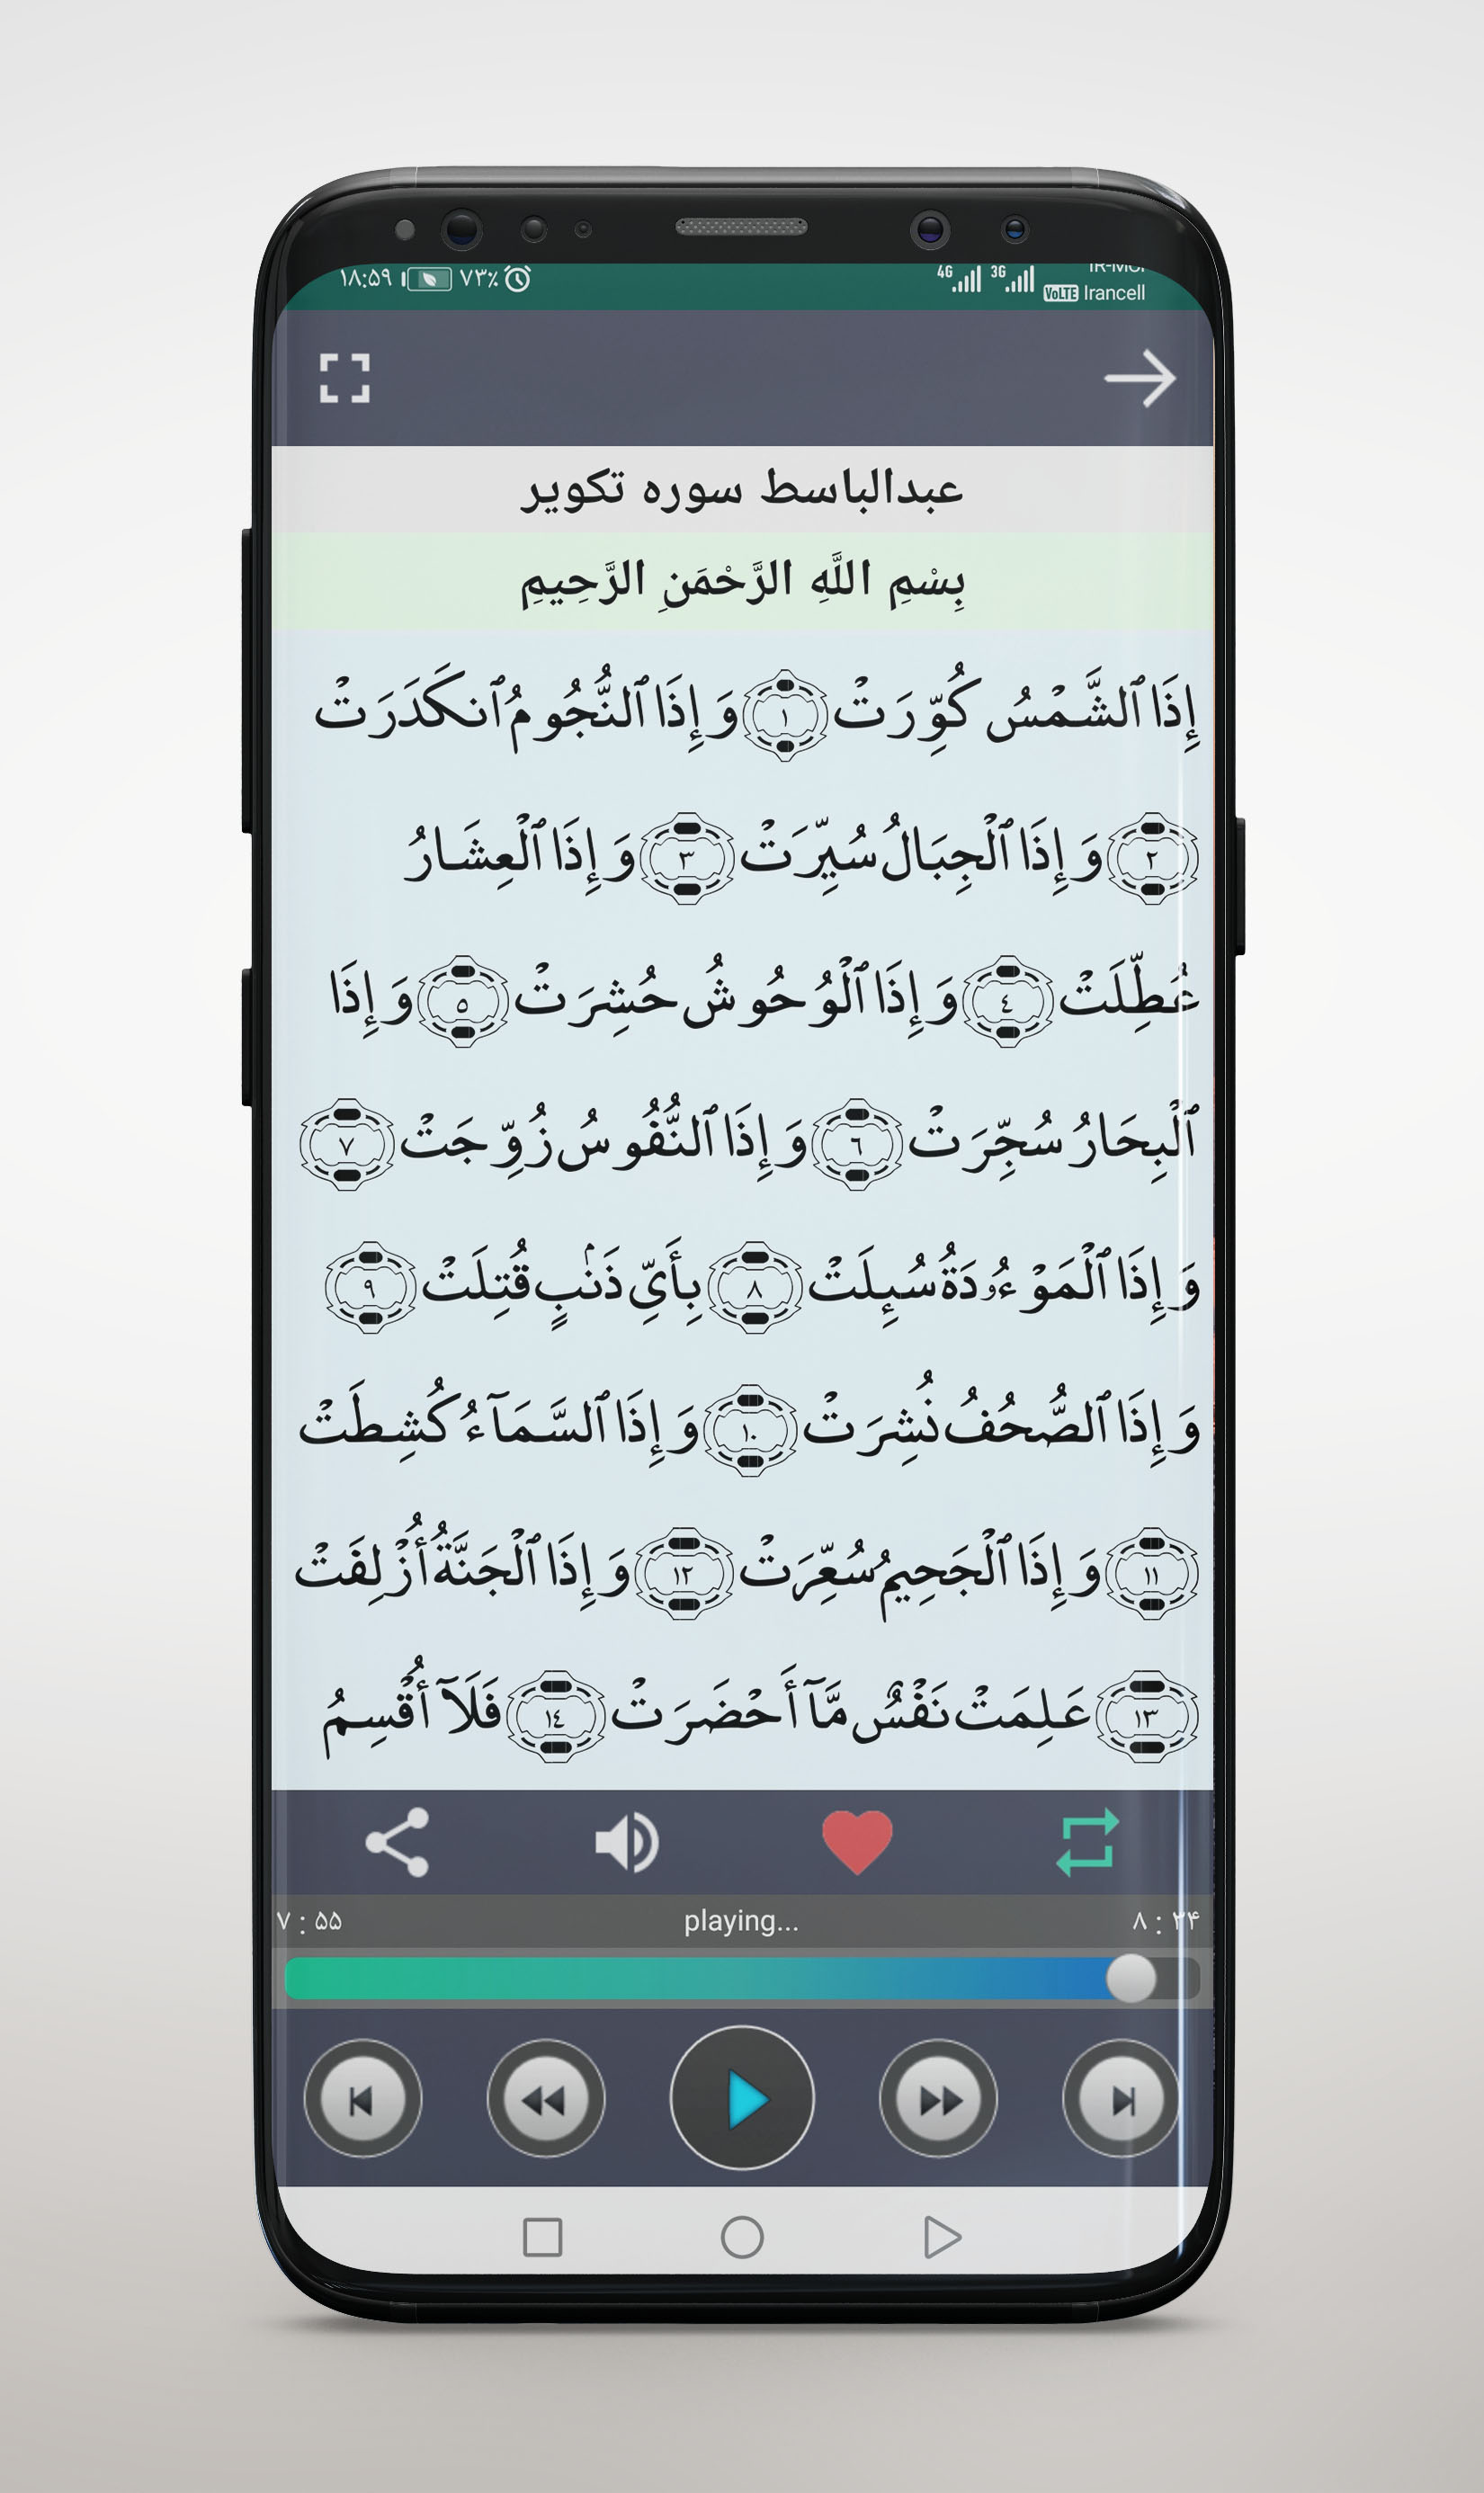 ۱۸:۵۹ ۷۳٪ 4G 3G IR-MCI
VoLTE Irancell
عبدالباسط سوره تکویر
بِسْمِ اللَّهِ الرَّحْمَنِ الرَّحِيمِ
إِذَا ٱلشَّمْسُ كُوِّرَتْ ١ وَإِذَا ٱلنُّجُومُ ٱنكَدَرَتْ
٢ وَإِذَا ٱلْجِبَالُ سُيِّرَتْ ٣ وَإِذَا ٱلْعِشَارُ
عُطِّلَتْ ٤ وَإِذَا ٱلْوُحُوشُ حُشِرَتْ ٥ وَإِذَا
ٱلْبِحَارُ سُجِّرَتْ ٦ وَإِذَا ٱلنُّفُوسُ زُوِّجَتْ ٧
وَإِذَا ٱلْمَوْءُۥدَةُ سُئِلَتْ ٨ بِأَىِّ ذَنۢبٍ قُتِلَتْ ٩
وَإِذَا ٱلصُّحُفُ نُشِرَتْ ١٠ وَإِذَا ٱلسَّمَآءُ كُشِطَتْ
١١ وَإِذَا ٱلْجَحِيمُ سُعِّرَتْ ١٢ وَإِذَا ٱلْجَنَّةُ أُزْلِفَتْ
١٣ عَلِمَتْ نَفْسٌ مَّآ أَحْضَرَتْ ١٤ فَلَآ أُقْسِمُ
۷ : ۵۵ playing... ۸ : ۳۴